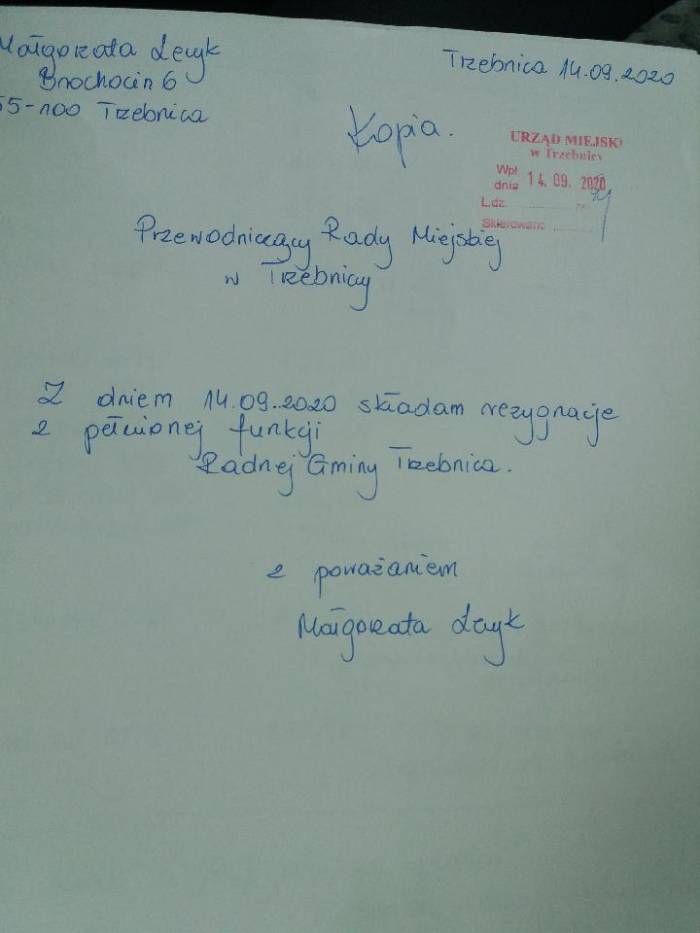 Małgorzata Lecyk
Brochocin 6
55-100 Trzebnica
Trzebnica 14.09.2020
Kopia.
URZĄD MIEJSKI
w Trzebnicy
Wpł.
dnia 14. 09. 2020
L.dz.
Skierowano
Przewodniczący Rady Miejskiej
w Trzebnicy
Z dniem 14.09.2020 składam rezygnacje
z pełnionej funkcji
Radnej Gminy Trzebnica.
z poważaniem
Małgorzata Lecyk